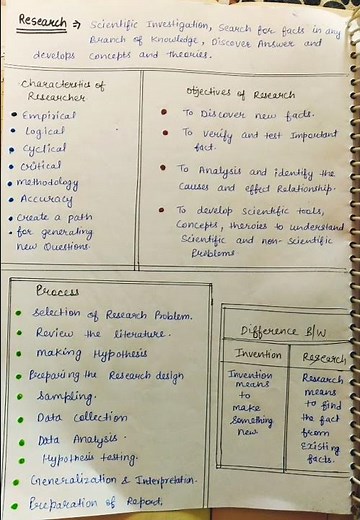 Research ⇒ Scientific Investigation, Search for facts in any
Branch of Knowledge, Discover Answer and
develops Concepts and Theories.
Characteristics of
Researcher
• Empirical
• Logical
• Cyclical
• Critical
• methodology
• Accuracy
• Create a path
• for generating
new Questions.
Objectives of Research
• To Discover new facts.
• To verify and test Important
fact.
• To Analysis and identify the
Causes and effect Relationship.
• To develop Scientific tools,
Concepts, theroies to understand
Scientific and non-scientific
Problems
Process
• Selection of Research Problem.
• Review the literature.
• Making Hypothesis
• Preparing the Research design
• Sampling.
• Data Collection
• Data Analysis.
• Hypothesis testing.
• Generalization & Interpretation.
• Preparation of Report.
Difference B/W
Invention
Invention
means
to
make
something
new
Research
Research
means
to find
the fact
from
Existing
facts.